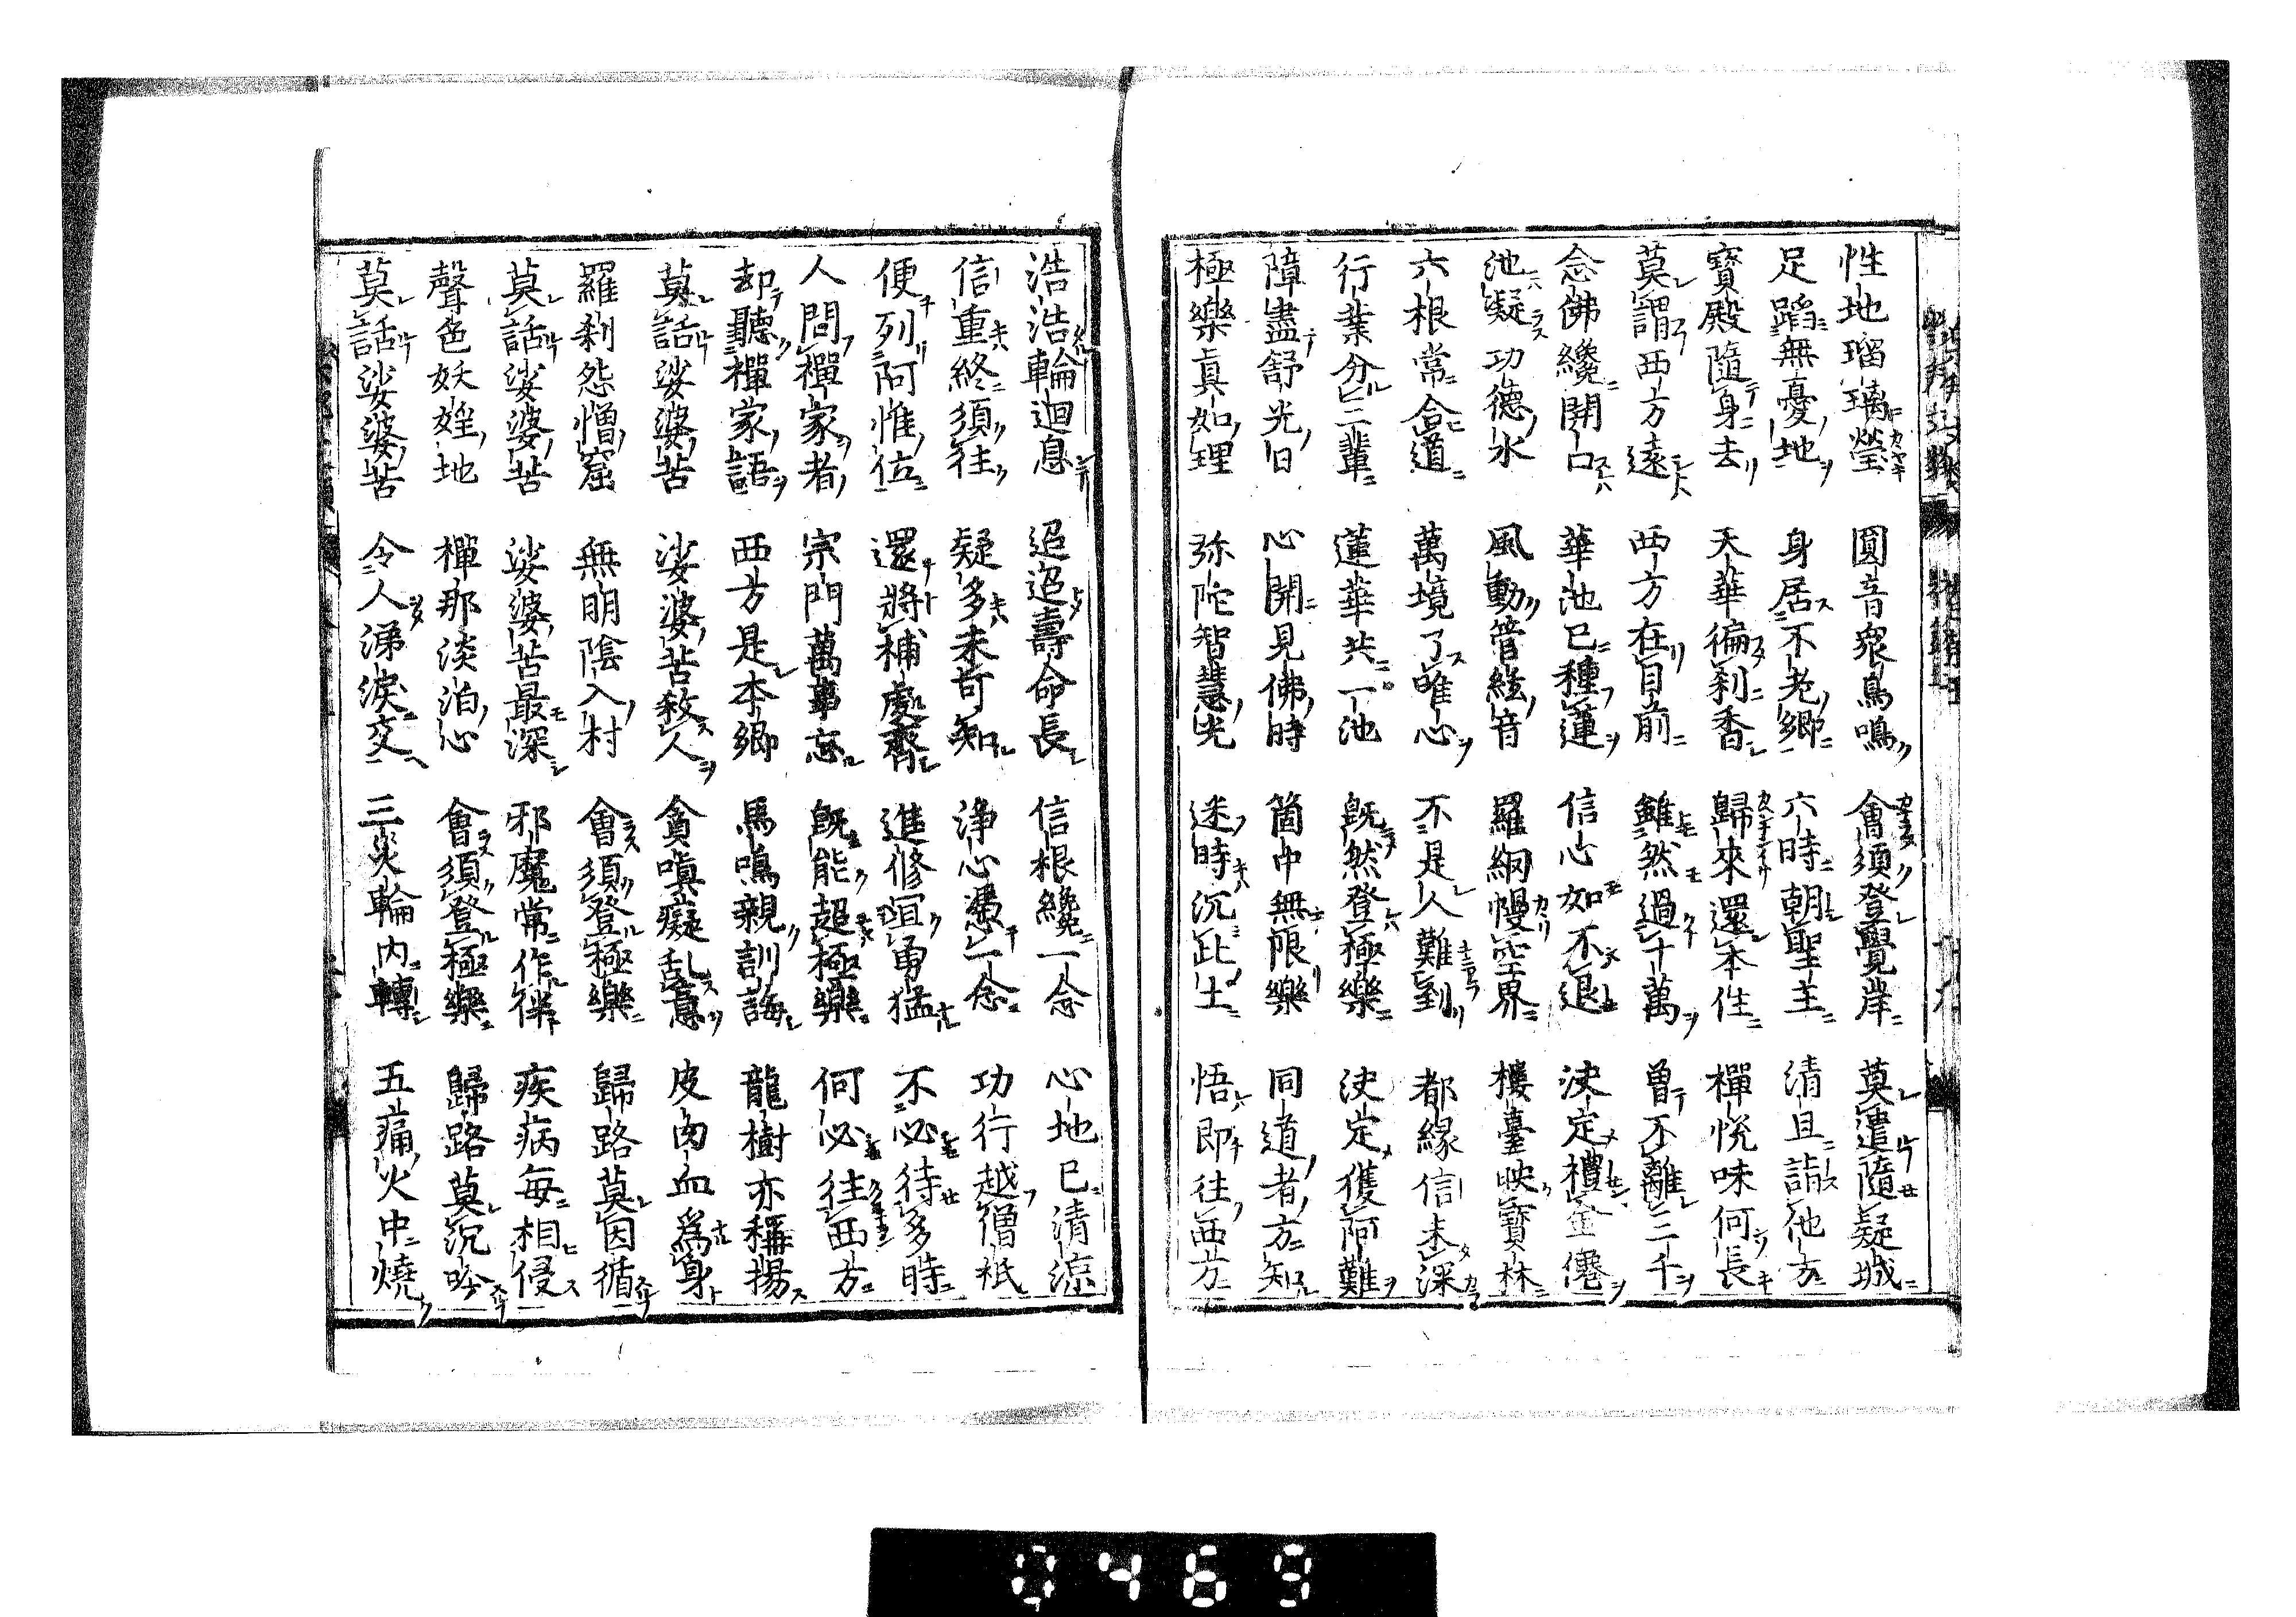 性地瑠璃瑩　圓音衆鳥鳴　會須登覺岸　莫遣隨疑城
足蹈無憂地　身居不老郷　六時朝聖主　清旦詣他方
寳殿隨身去　天華徧刹香　歸來還本住　禪悅味何長
莫謂西方遠　西方在目前　雖然過十萬　曾不離三千
念佛纔開口　華池已種蓮　信心如不退　決定禮金僊
池凝功德水　風動管絃音　羅網幔空界　樓臺映寳林
六根常合道　萬境了唯心　不是人難到　都緣信未深
行業分三輩　蓮華共一池　既然登極樂　決定獲阿難
障盡舒光日　心開見佛時　箇中無限樂　同道者方知
極樂眞如理　弥陀智慧光　迷時沉此土　悟即往西方
浩浩輪迴息　迢迢壽命長　信根纔一念　心地已清涼
信重終須往　疑多未可知　淨心憑一念　功行越僧祇
便列阿惟位　還將補處齊　進修宜勇猛　不必待多時
人間禪家者　宗門萬事忘　既能超極樂　何必往西方
却聽禪家語　西方是本郷　馬鳴親訓誨　龍樹亦稱揚
莫話娑婆苦　娑婆苦殺人　貪嗔癡乱意　皮肉血爲身
羅刹怨憎窟　無明陰入村　會須登極樂　歸路莫因循
莫話娑婆苦　娑婆苦最深　邪魔常作伴　疾病每相侵
聲色妖婬地　禪那淡泊心　會須登極樂　歸路莫沉吟
莫話娑婆苦　令人涕淚交　三災輪內轉　五痛火中燒
0469